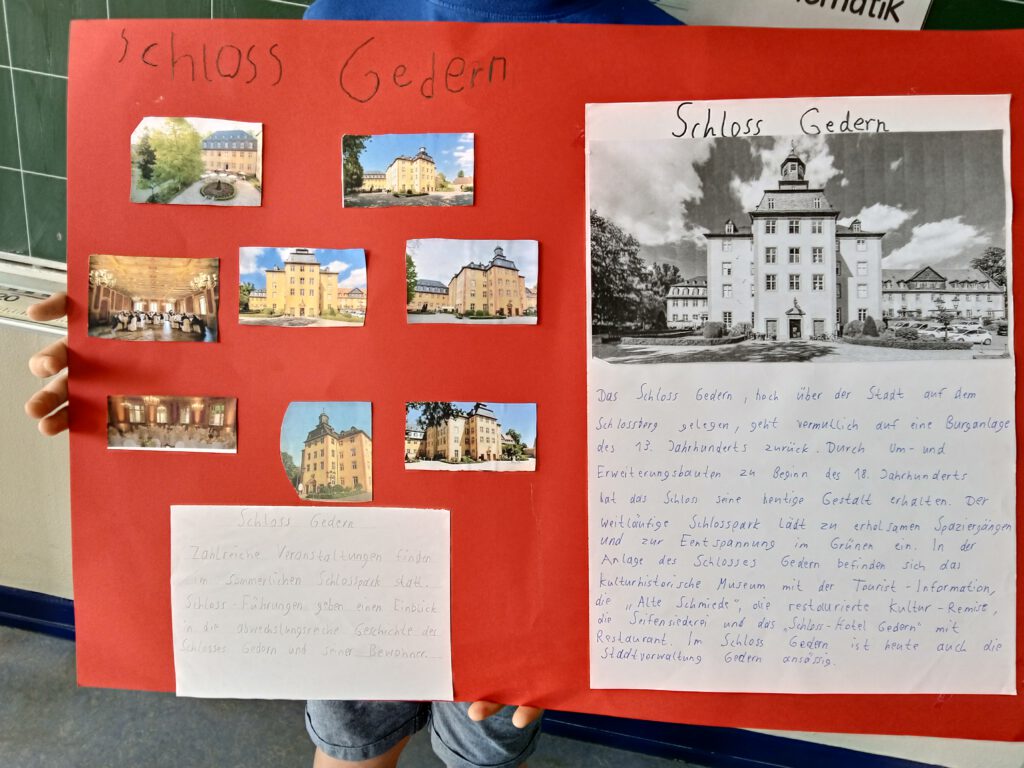 Schloss Gedern
Schloss Gedern
Das Schloss Gedern, hoch über der Stadt auf dem
Schlossberg gelegen, geht vermutlich auf eine Burganlage
des 13. Jahrhunderts zurück. Durch Um- und
Erweiterungsbauten zu Beginn des 18. Jahrhunderts
hat das Schloss seine heutige Gestalt erhalten. Der
weitläufige Schlosspark lädt zu erholsamen Spaziergängen
und zur Eentspannung im Grünen ein. In der
Anlage des Schlosses Gedern befinden sich das
kulturhistorische Museum mit der Tourist-Information,
die „Alte Schmiede", die restaurierte Kultur-Remise,
die Seifensiederei und das „Schloss-Hotel Gedern" mit
Restaurant. Im Schloss Gedern ist heute auch die
Stadtverwaltung Gedern ansässig.
Schloss Gedern
Zahlreiche Veranstaltungen finden
im sommerlichen Schlosspark statt.
Schloss-Führungen geben einen Einblick
in die abwechslungsreiche Geschichte des
Schlosses Gedern und seiner Bewohner.